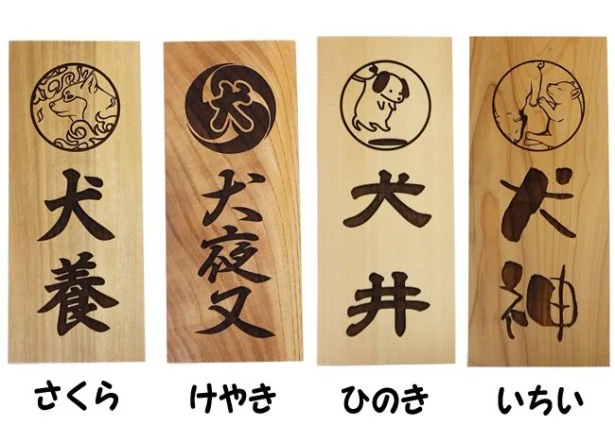 犬養
さくら
犬
犬夜叉
けやき
犬井
ひのき
犬神
いちい